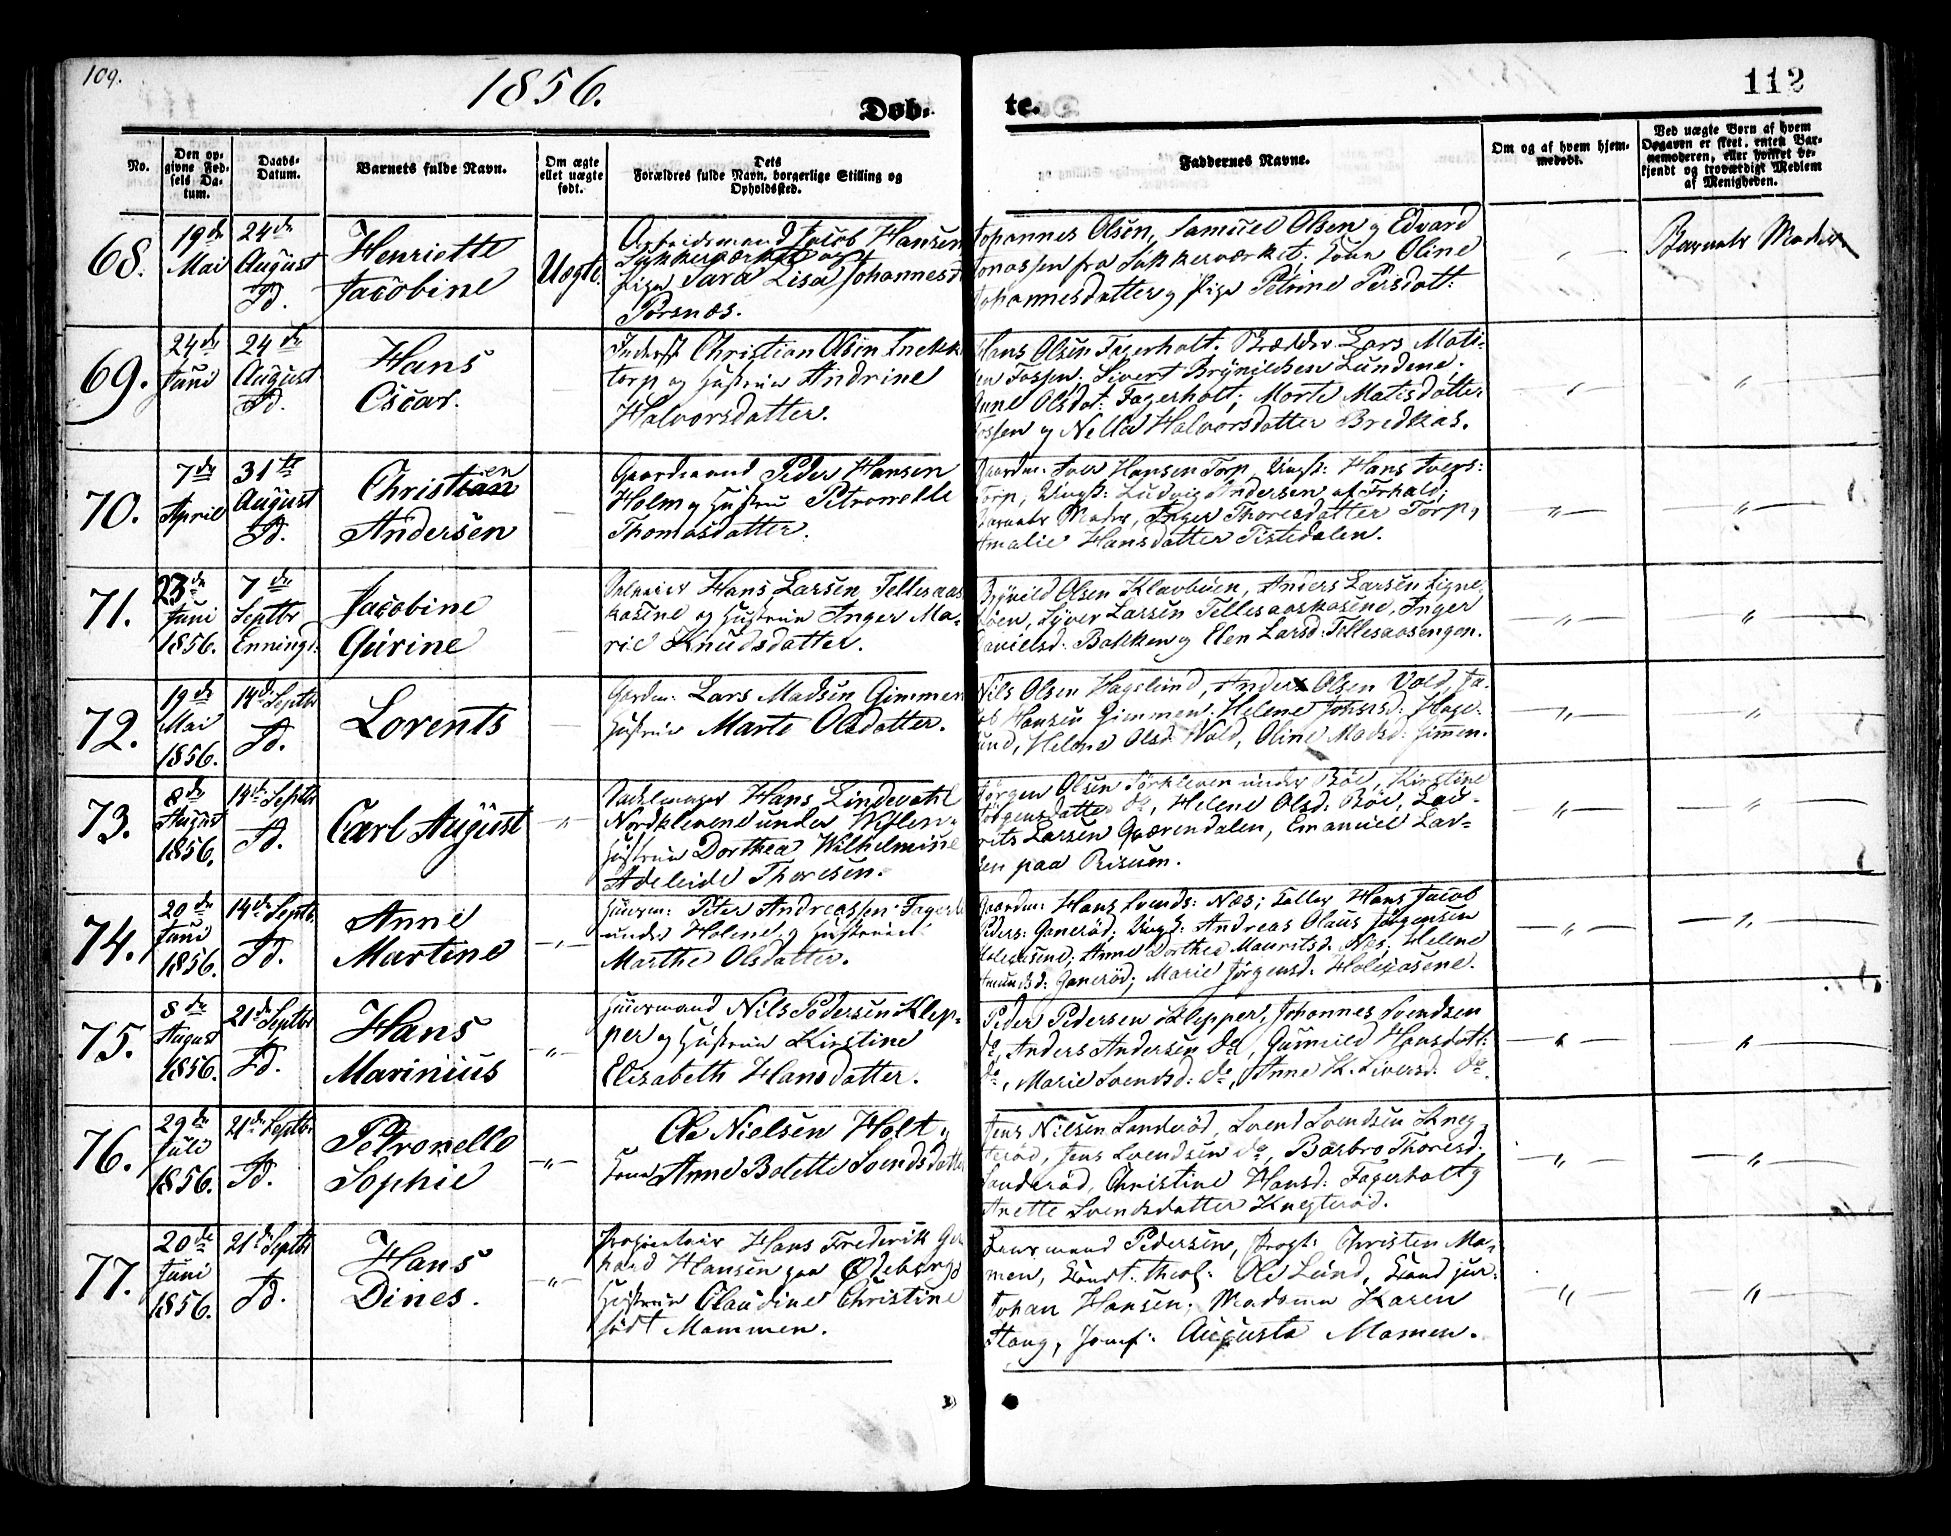 109.
1856.
Døb-
te.
112
No.
Den op-
givne Fød-
sels Da-
tum.
Daabs-
Datum.
Barnets fulde Navn.
Om ægte
eller uægte
født.
Dets
Forældres fulde Navn, borgerlige Stilling og
Opholdssted.
Faddernes Navne.
Om og af hvem hjem-
medøbt.
Ved uægte Børn af hvem
Opgaven er skeet, enten Bar-
nemoderen, eller hvilket be-
kjendt og troværdigt Medlem
af Menigheden.
68.
19de
Mai
24de
August
Id.
Henriette
Jacobine
Uægte.
Arbeidsmand Jacob Hansen
Sukkerværket og
Pige Sara Lisa Johannesd
Porsnæs.
Johannes Olsen, Samuel Olsen og Edvard
Jonassen fra Sukkerværket; Kone Oline
Johannesdatter og Pige Petrine Persdatt:
Barnets Moder
69.
24de
Juni
24de
August
Id.
Hans
Oscar.
Inderst Christian Olsen Knekk
torp og Hustrue Andrine
Halvorsdatter.
Hans Olsen Fagerholt. Lars Mati-
sen Fossen. Sivert Brynildsen Lundene.
Anne Olsdat: Fagerholt; Morte Matisdatter
Fossen og Nella Halvorsdatter Bredkas.
70.
7de
April
31te
August
Id.
Christian en
Andersen
Gaardmand Peder Hansen
Holm og Hustru Petronelle
Thomasdatter.
Gaardm: Iver Hansen Torp, Ungk: Hans Ivers:
Torp, Ungk: Ludvig Andersen af Frhald;
Barnets Moder, Inger Thoresdatter Torp,
Amalie Hansdatter Tistedalen.
71.
23de
Juni
1856.
7de
Septbr
Enningd:
Jacobine
Gurine
Hans Larsen Tellesaas
kasene og Hustrue Anger Ma-
rie Knudsdatter.
Brynild Olsen Klavbuen, Anders Larsen Ligne
Syver Larsen Tellesaaskasene, Inger
Danielsd: Bakken og Elen Larsd: Tellesaasengen.
72.
19de
Mai
1856.
14de Septbr
Id.
Lorents
Gaardm: Lars Madsen Gimmen
Hustrue Marte Olsdatter.
Nils Olsen Hagelund, Anders Olsen Vold, Ja-
cob Hansen Gimmen, Helene Johnsd: Hage-
lund, Helene Olsd: Vold, Oline Madsd: Gimen.
73.
8de
August
1856.
14de Septbr
Id.
Carl August
Hans Lindevahl
Nordklevene under
Hustrue Dorthea Wilhelmine
Adeleide Thoresen.
Jørgen Olsen Tørkleven under Bøe, Kirstine
Jørgensdatter do, Helene Olsd: Bøe, Lau-
rits Larsen Qværndalen, Emanuel Lar-
sen paa Risum.
74.
20de
Juni
1856.
14de Septbr.
Id.
Anne
Martine
Huusm: Peter Andreassen Fagerh
under Holene og Hustrue
Marthe Olsdatter.
Gaardm: Hans Svends: Næs; Hans Jacob
Peders: Ganerød; Ungk: Andreas Olaus Jørgensen
Holekasene; Anne Dorthea Mauritsd: Næs; Helene
Amundsd: Ganerød; Marie Jørgensd: Holekasene.
75.
8de
August
1856.
21de Septbr
Id.
Hans
Marinius
Huusmand Nils Pedersen Klep-
per og Hustrue Kirstine
Elisabeth Hansdatter.
Peder Pedersen Klepper, Johannes Svendsen
do, Anders Andersen do, Gunnild Hansdatt:
do, Marie Svendsd: do, Anne K. Siversd: do.
76.
29de
Juli
1856.
21de Septbr.
Id.
Petronelle
Sophie
Ole Nielsen Holt og
Kone Anne Bolette Svendsdatter
Jens Nilsen Sanderød, Svend Svendsen Kneg-
terød, Jens Svendsen do, Barbro Thoresd:
Sanderød, Christine Hansd: Fagerholt og
Anette Svendsdatter Knegterød.
77.
20de
Juni
1856.
21de Septbr
Id.
Hans
Dines.
Proprietair Hans Frederik Ger
hard Hansen paa Ødeborg
Hustrue Claudine Christine
født Mammen.
Huusmand Pedersen, Christen Ma-
men, Kand: theol: Ole Lund, Kand jur:
Johan Hansen; Madame Karen
Stang, Jomf: Augusta Mamen.